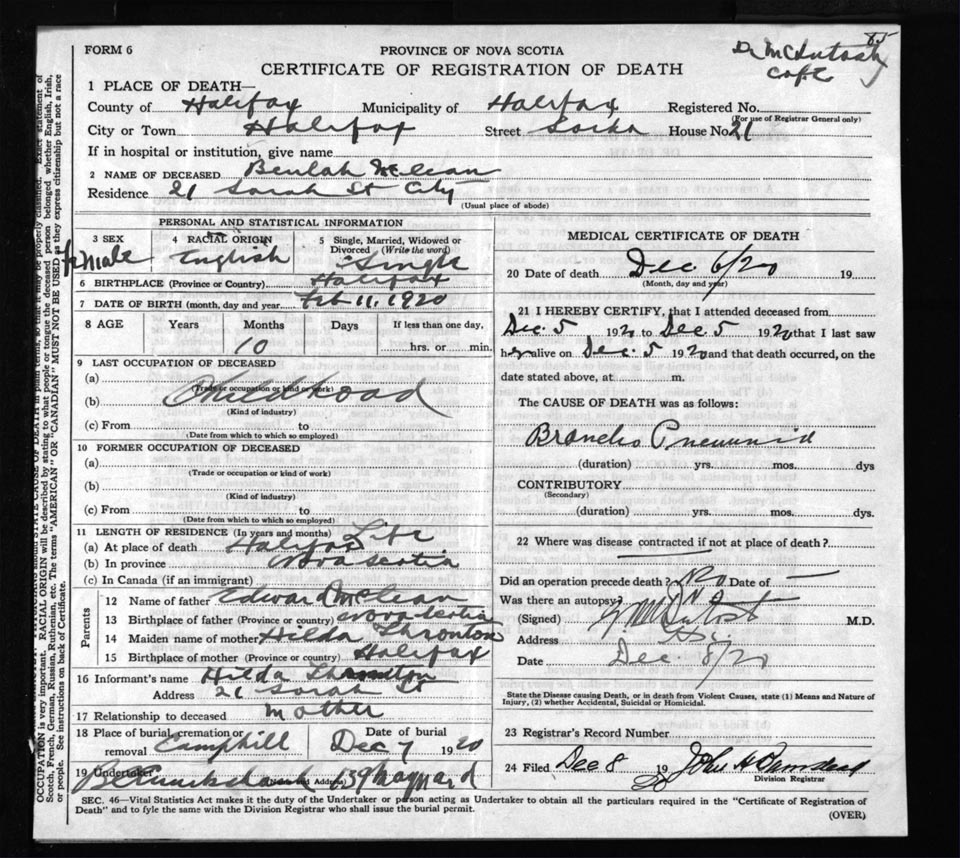 FORM 6
PROVINCE OF NOVA SCOTIA
CERTIFICATE OF REGISTRATION OF DEATH
Dr McIntosh
Copt
85
1 PLACE OF DEATH—
County of Halifax Municipality of Halifax Registered No.
(For use of Registrar General only)
City or Town Halifax Street House No. 21
If in hospital or institution, give name
2 NAME OF DECEASED Beulah McLean
Residence 21 Sarah St City
(Usual place of abode)
PERSONAL AND STATISTICAL INFORMATION
3 SEX 4 RACIAL ORIGIN 5 Single, Married, Widowed or Divorced (Write the word)
female English Single
6 BIRTHPLACE (Province or Country) Halifax
7 DATE OF BIRTH (month, day and year) Feb 11, 1920
8 AGE Years Months Days If less than one day,
10 hrs. or min.
9 LAST OCCUPATION OF DECEASED
(a)
(Trade or occupation or kind of work)
(b) Childhood
(Kind of industry)
(c) From to
(Date from which to which so employed)
10 FORMER OCCUPATION OF DECEASED
(a)
(Trade or occupation or kind of work)
(b)
(Kind of industry)
(c) From to
(Date from which to which so employed)
11 LENGTH OF RESIDENCE (In years and months) Life
(a) At place of death Halifax
(b) In province Nova Scotia
(c) In Canada (if an immigrant)
Parents
12 Name of father Edward McLean
13 Birthplace of father (Province or country) Nova Scotia
14 Maiden name of mother Hilda Thronton
15 Birthplace of mother (Province or country) Halifax
16 Informant's name Hilda
Address 21 Sarah St
17 Relationship to deceased mother
18 Place of burial, cremation or removal Camphill Date of burial Dec 7 1920
19 Undertaker Address 139 Maynard
MEDICAL CERTIFICATE OF DEATH
20 Date of death Dec 6/20 19
(Month, day and year)
21 I HEREBY CERTIFY, that I attended deceased from
Dec. 5 1920 to Dec 5 1920 that I last saw
her alive on Dec. 5 1920 and that death occurred, on the
date stated above, at m.
The CAUSE OF DEATH was as follows:
Broncho Pneumonia
(duration) yrs. mos. dys
CONTRIBUTORY
(Secondary)
(duration) yrs. mos. dys.
22 Where was disease contracted if not at place of death?
Did an operation precede death? No Date of —
Was there an autopsy? No
(Signed) McIntosh M.D.
Address
Date Dec. 8/20
State the Disease causing Death, or in death from Violent Causes, state (1) Means and Nature of
Injury, (2) whether Accidental, Suicidal or Homicidal.
23 Registrar's Record Number
24 Filed Dec 8 19 20 John H Barnstead
Division Registrar
SEC. 46—Vital Statistics Act makes it the duty of the Undertaker or person acting as Undertaker to obtain all the particulars required in the "Certificate of Registration of
Death" and to fyle the same with the Division Registrar who shall issue the burial permit.
(OVER)